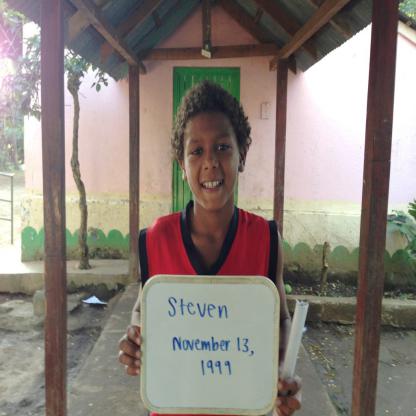 Steven
November 13,
1999